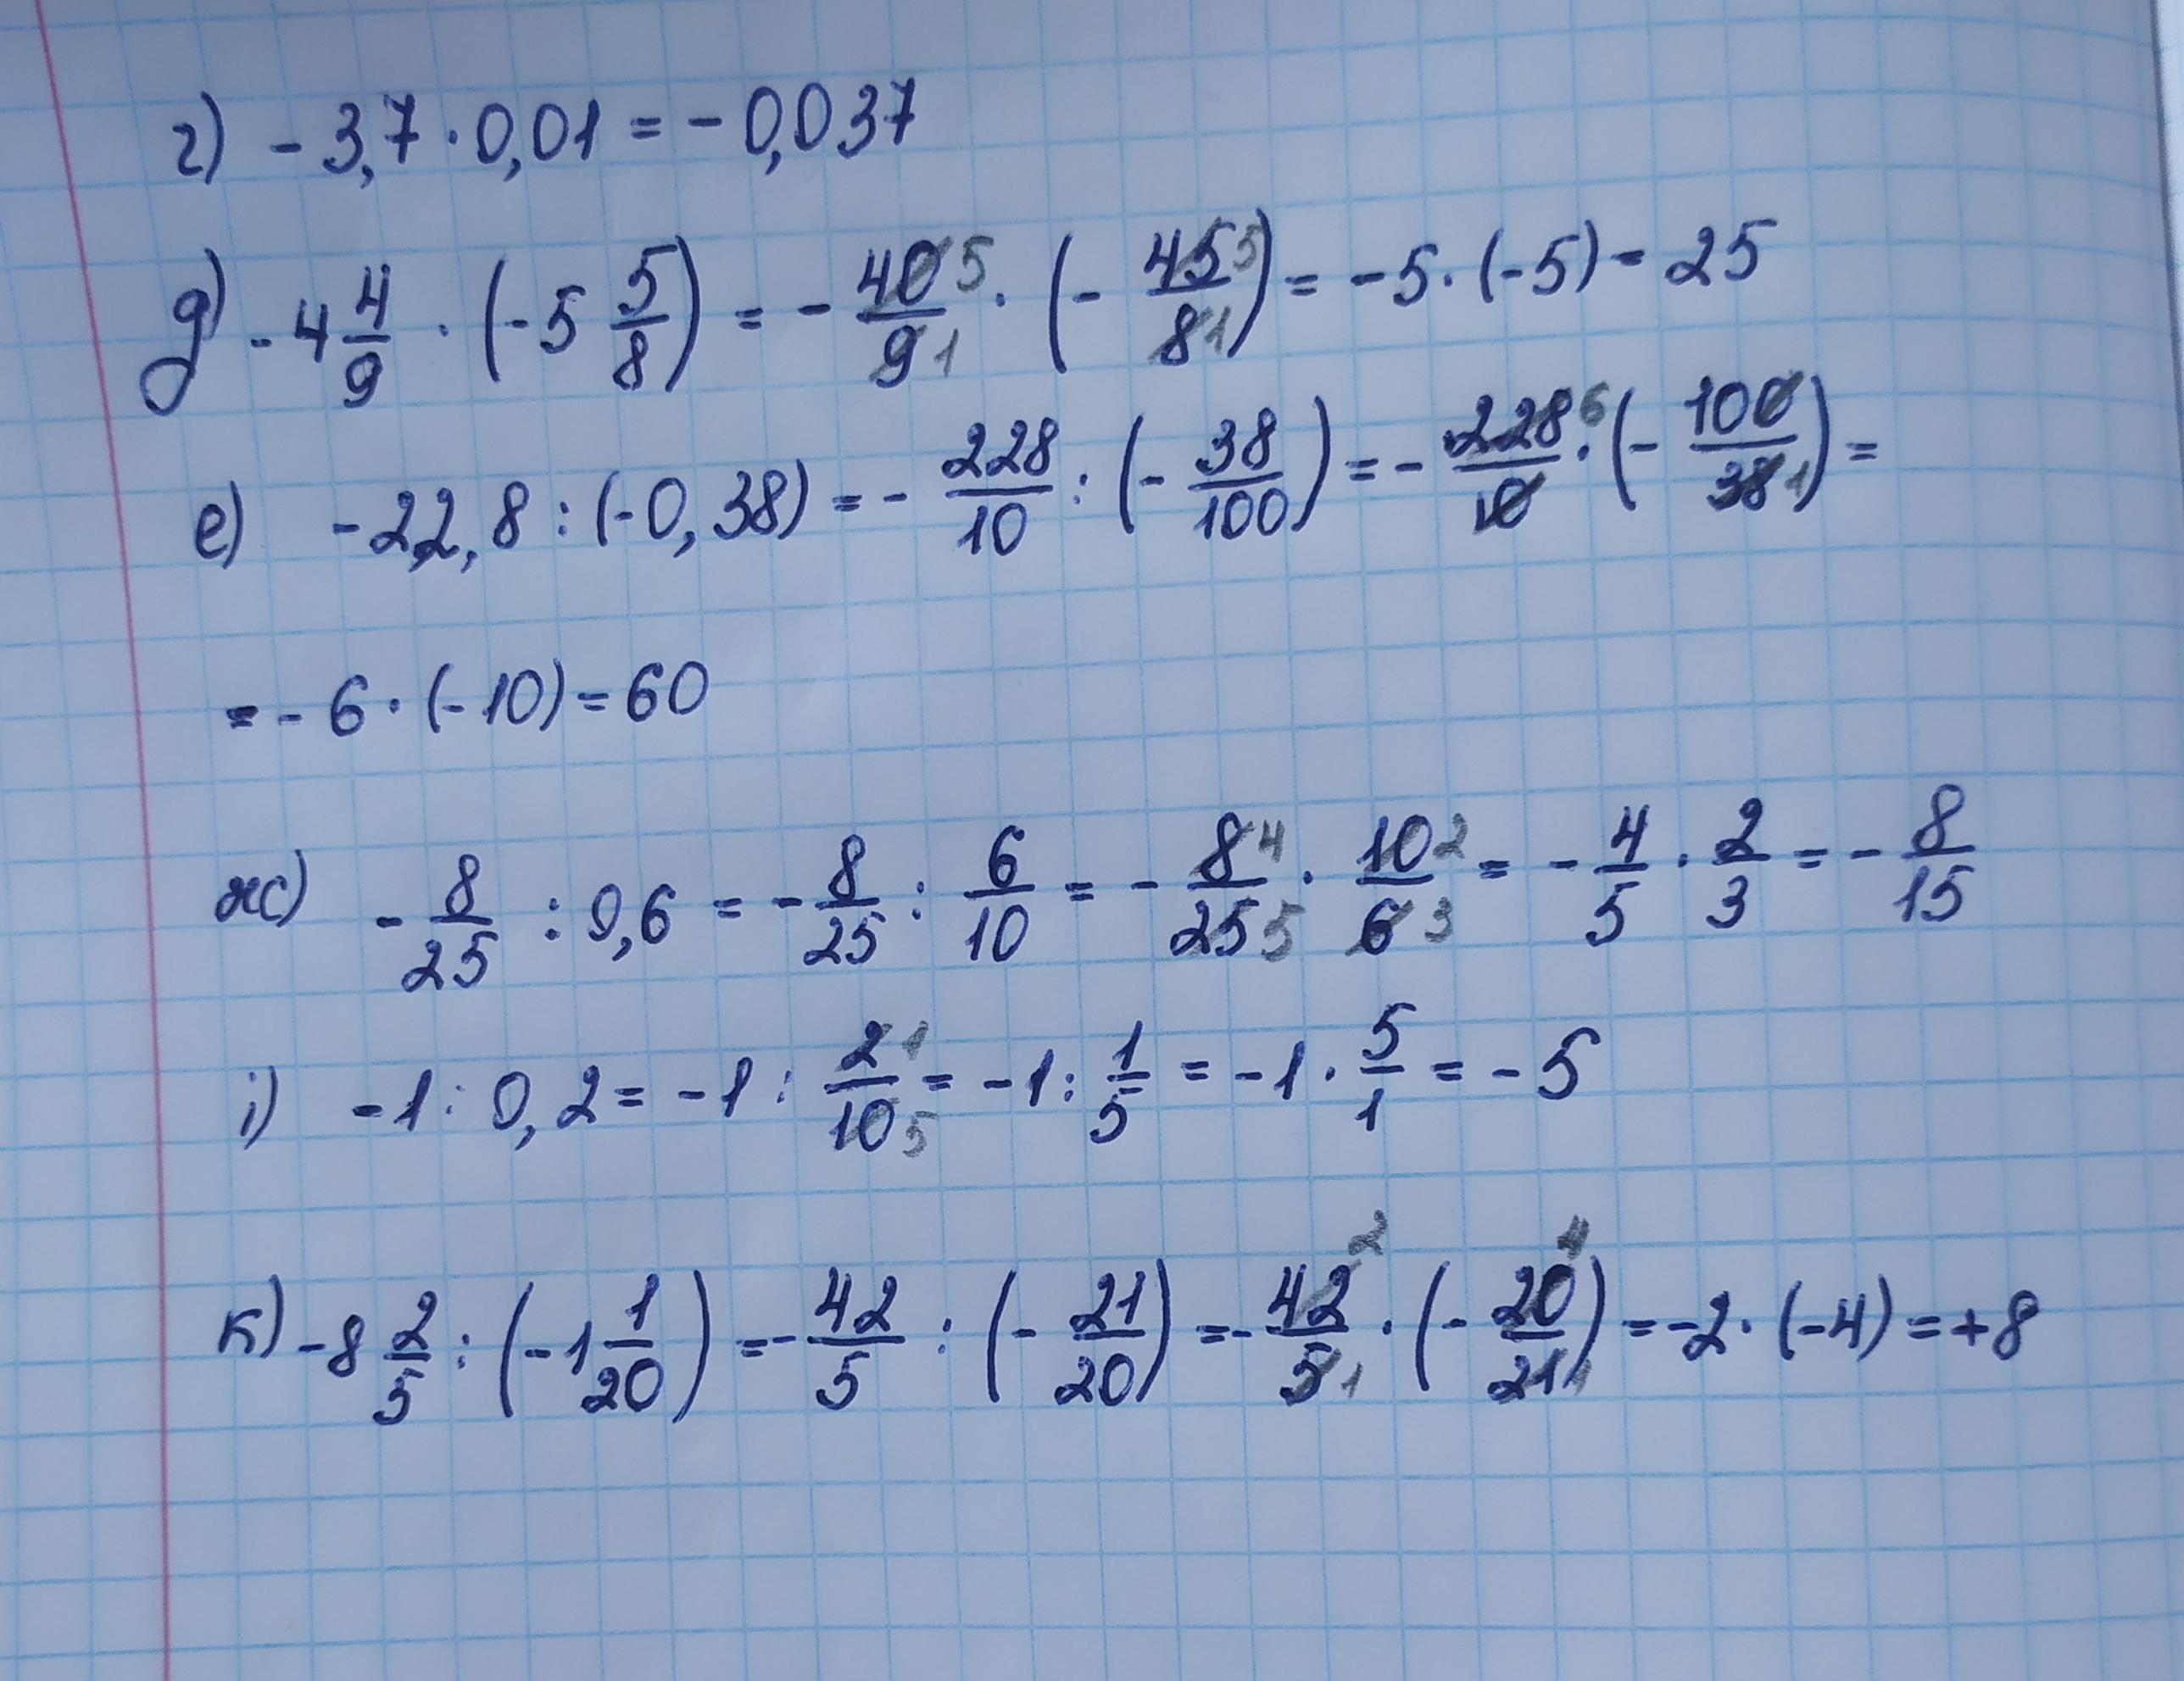 г) -3,7 · 0,01 = -0,037
д) -4 4/9 · (-5 5/8) = - 40 5/9 1 · (- 45 5/8 1) = -5 · (-5) = 25
е) -22,8 : (-0,38) = - 228/10 : (- 38/100) = - 228 6/10 · (- 100/38 1) =
= - 6 · (-10) = 60
ж) - 8/25 : 0,6 = - 8/25 : 6/10 = - 8 4/25 5 · 10 2/6 3 = - 4/5 · 2/3 = - 8/15
і) -1 : 0,2 = -1 : 2 1/10 5 = -1 : 1/5 = -1 · 5/1 = -5
к) -8 2/5 : (-1 1/20) = - 42/5 : (- 21/20) = - 42 2/5 1 · (- 20 4/21 1) = -2 · (-4) = +8